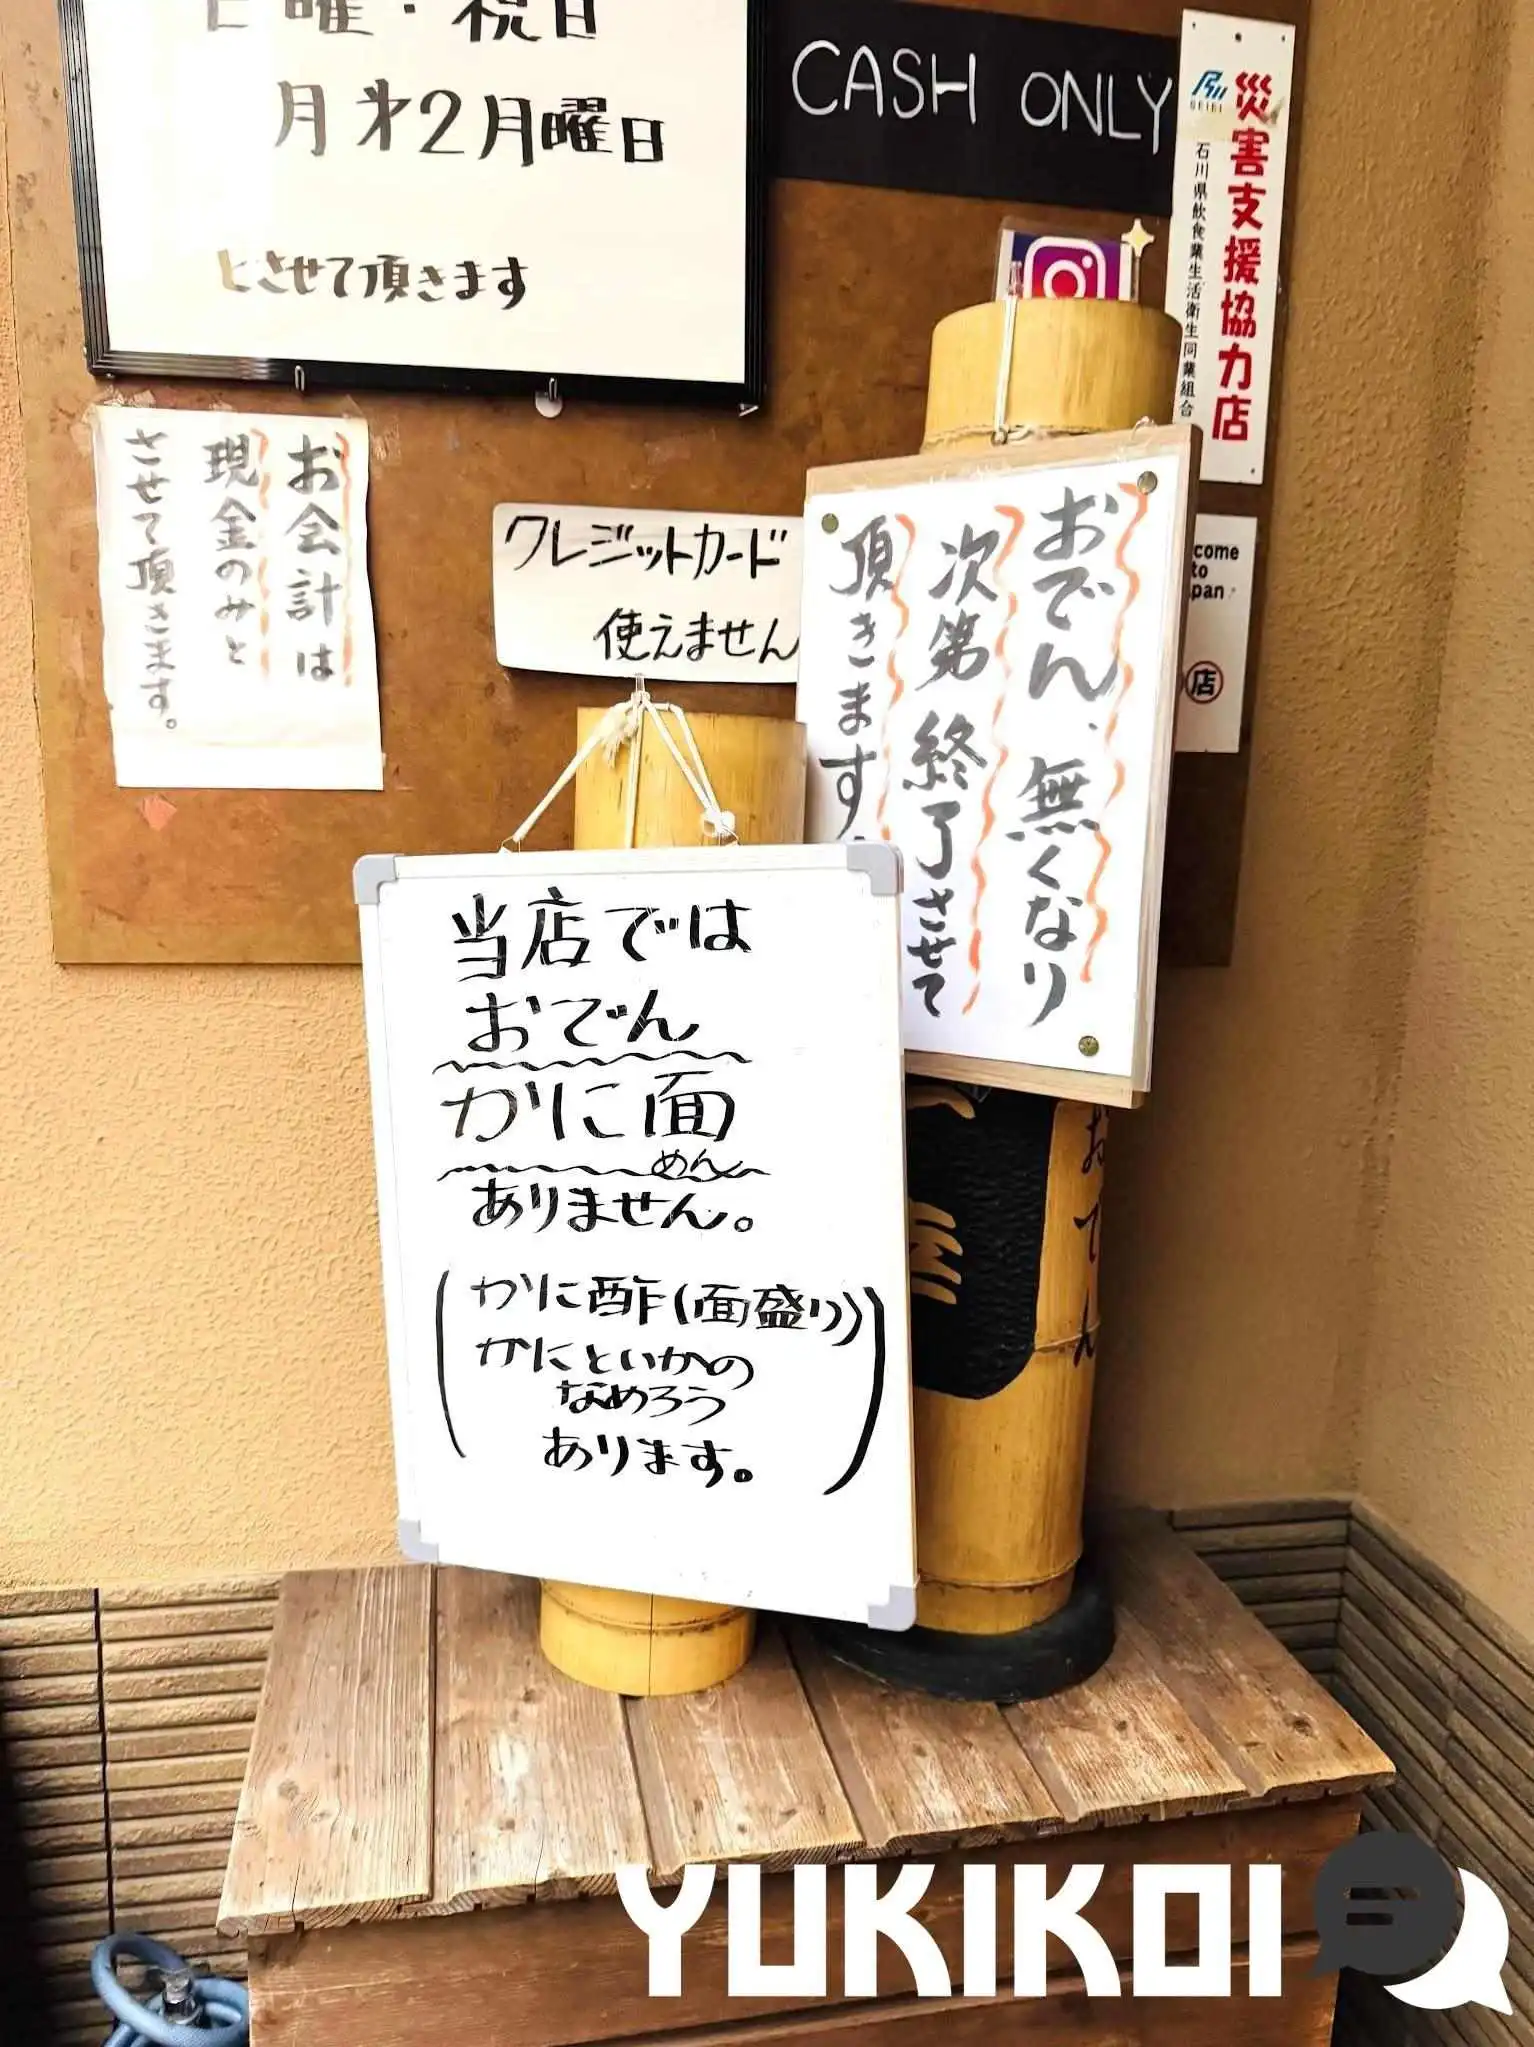 日曜・祝日
月第2月曜日
とさせて頂きます
CASH ONLY
災害支援協力店
石川県飲食業生活衛生同業組合
お会計は
現金のみと
させて頂きます。
クレジットカード
使えません
おでん、無くなり
次第終了させて
頂きます
come
to
pan
店
当店では
おでん
かに面
めん
ありません。
(かに酢(面盛り)
かにといかの
なめろう
あります。)
おでん
YUKIKOI